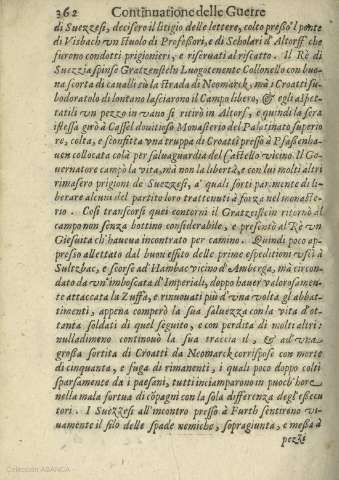 362 Continuatione delle Guerre
di Suezzesi, decisero il litigio delle lettere, colto presso 'l ponte
di Visbach vn stuolo di Professori, e di Scholari d'Altorff che
furono condotti prigionieri, e riseruati al riscatto. Il Rè di
Suezzia spinse Gratzenstein Luogotenente Collonello con buo-
na scorta di caualli sù la strada di Neomarck, mà i Croati su-
bodoratulo di lontano lasciarono il Campo libero, & egli aspet-
tatili vn pezzo in vano si ritirò in Altorf, e quindi la sera
istessa girò à Cassel douitioso Monasterio del Palatinato superio
re, colta, e sconfitta vna truppa di Croati presso à Pfaffenha-
uen collocata colà per saluaguardia del Castello vicino. Il Go-
uernatore campò la vita, mà non la libertà, e con lui molti altri
rimasero prigioni de Suezzesi, a' quali sorti parimente di li-
berare alcuni del partito loro trattenuti à forza nel monaste-
rio. Così transcorsi quei contorni il Gratzestein ritornò al
campo non senza bottino considerabile, e presentò al Rè vn
Giesuita ch'haueua incontrato per camino. Quindi poco ap-
presso allettato dal buon essito delle prime espeditioni vscì à
Sultzbac, e scorse ad Hambac vicino d'Amberga, mà circon-
dato da vn'imboscata d'Imperiali, doppo hauer valorosamen-
te attaccata la Zuffa, e rinuouati più d'vna volta gl'abbat-
timenti, appena comperò la sua saluezza con la vita d'ot-
tanta soldati di quel seguito, e con perdita di molti altri:
nulladimeno continouò la sua traccia il, & ad vna
grossa sortita di Croatti da Neomarck corrispose con morte
di cinquanta, e fuga di rimanenti, i quali poco doppo colti
sparsamente da i paesani, tutti inciamparono in puoch'hore
nella mala fortuna di cōpagni con la sola differenza degl'essecu
tori. I Suezzesi all'incontro presso à Furth sentirono vi-
uamente il filo delle spade nemiche, sopragiunta, e messa à
pezzi
Colección ABANCA